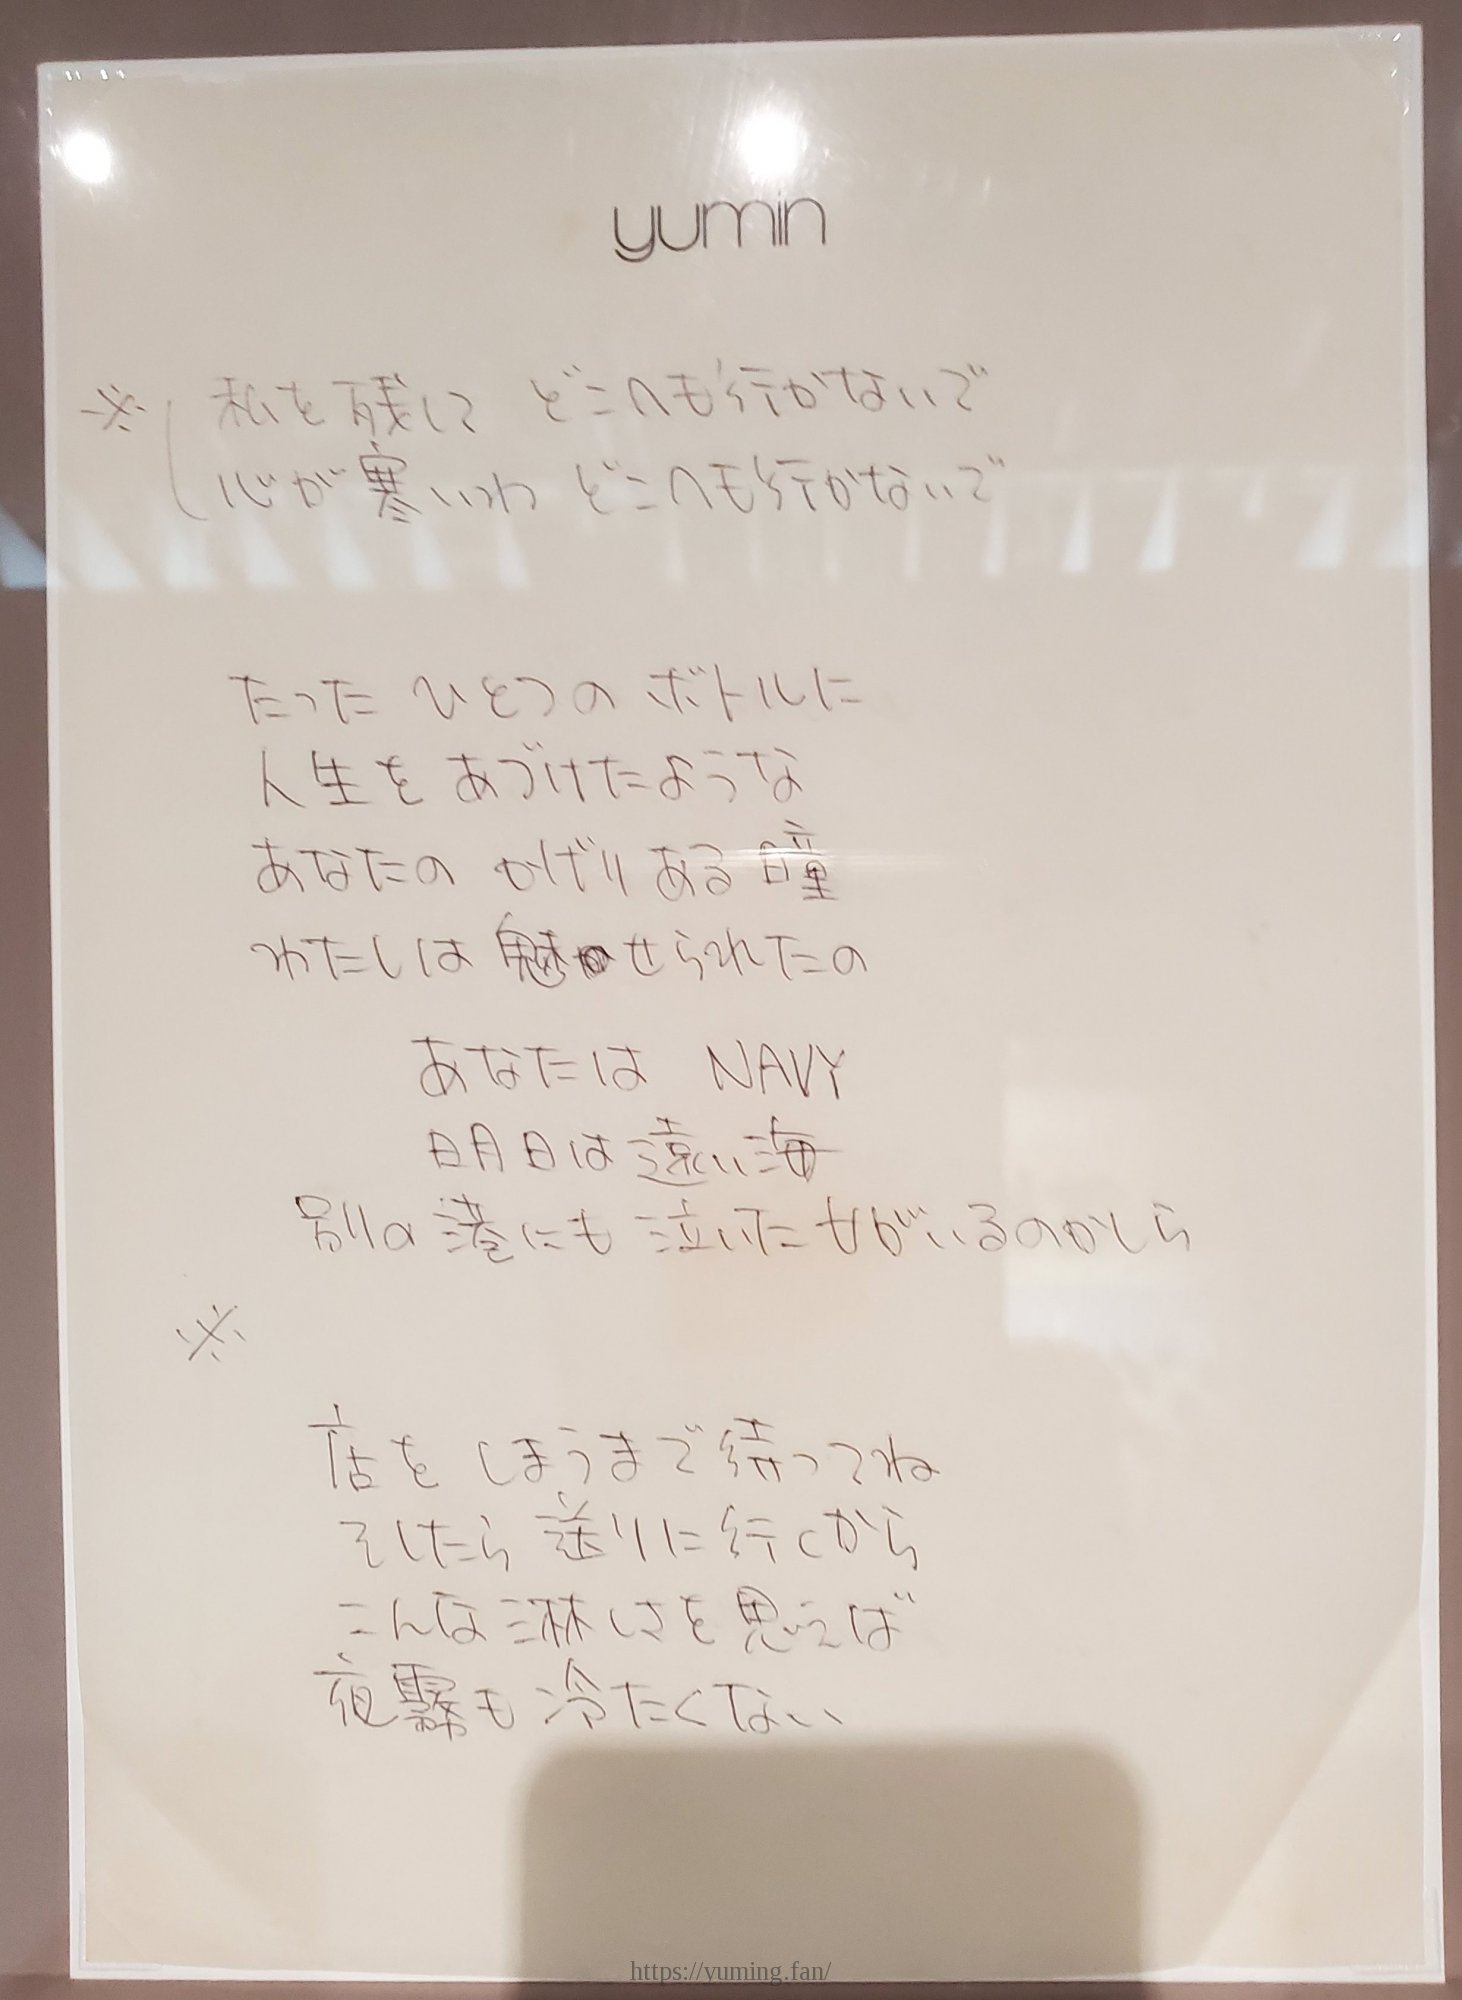 yumin
※ 私を残して どこへも行かないで
心が寒いわ どこへも行かないで
たった ひとつの ボトルに
人生を あづけたような
あなたの かげりある瞳
わたしは 魅せられたの
あなたは NAVY
明日は遠い海
別の港にも 泣いた女がいるのかしら
※
店を しまうまで待ってね
そしたら 送りに行くから
こんな淋しさを思えば
夜霧も冷たくない
https://yuming.fan/